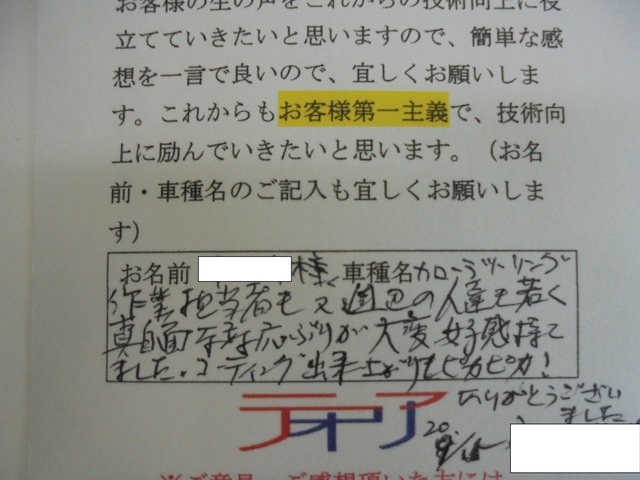 お客様の生の声をこれからの技術向上に役
立てていきたいと思いますので、簡単な感
想を一言で良いので、宜しくお願いしま
す。これからもお客様第一主義で、技術向
上に励んでいきたいと思います。（お名
前・車種名のご記入も宜しくお願いしま
す）
お名前 様 車種名カローラツーリング
作業担当者も又周辺の人達も若く
真面目な対応ぶりが大変好感持て
ました。コーティング出来上がりもピカピカ！
ありがとうござい
ました
テオリア
20
※ご意見、ご感想頂いた方には